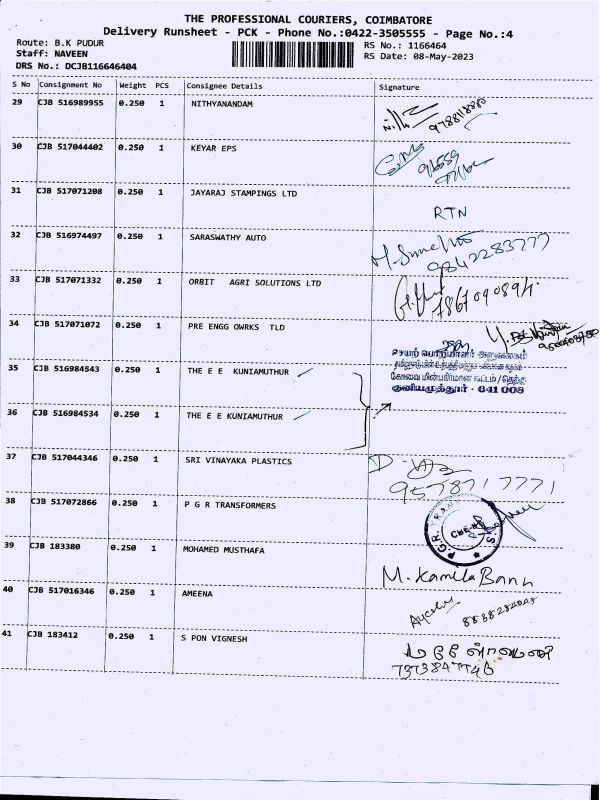 THE PROFESSIONAL COURIERS, COIMBATORE
Delivery Runsheet - PCK - Phone No.:0422-3505555 - Page No.:4
Route: B.K PUDUR
RS No.: 1166464
Staff: NAVEEN
RS Date: 08-May-2023
DRS No.: DCJB116646404
S No Consignment No Weight PCS Consignee Details Signature
29 CJB 516989955 0.250 1 NITHYANANDAM
30 CJB 517044402 0.250 1 KEYAR EPS
31 CJB 517071208 0.250 1 JAYARAJ STAMPINGS LTD RTN
32 CJB 516974497 0.250 1 SARASWATHY AUTO
9842283777
33 CJB 517071332 0.250 1 ORBIT AGRI SOLUTIONS LTD
34 CJB 517071072 0.250 1 PRE ENGG OWRKS TLD
35 CJB 516984543 0.250 1 THE E E KUNIAMUTHUR
செயற் பொறியாளர் அலுவலகம்
குனியமுத்தூர் - 641 008
36 CJB 516984534 0.250 1 THE E E KUNIAMUTHUR
37 CJB 517044346 0.250 1 SRI VINAYAKA PLASTICS
9578717771
38 CJB 517072866 0.250 1 P G R TRANSFORMERS
39 CJB 183380 0.250 1 MOHAMED MUSTHAFA
M. Kamila Banu
40 CJB 517016346 0.250 1 AMEENA
41 CJB 183412 0.250 1 S PON VIGNESH
7373847746